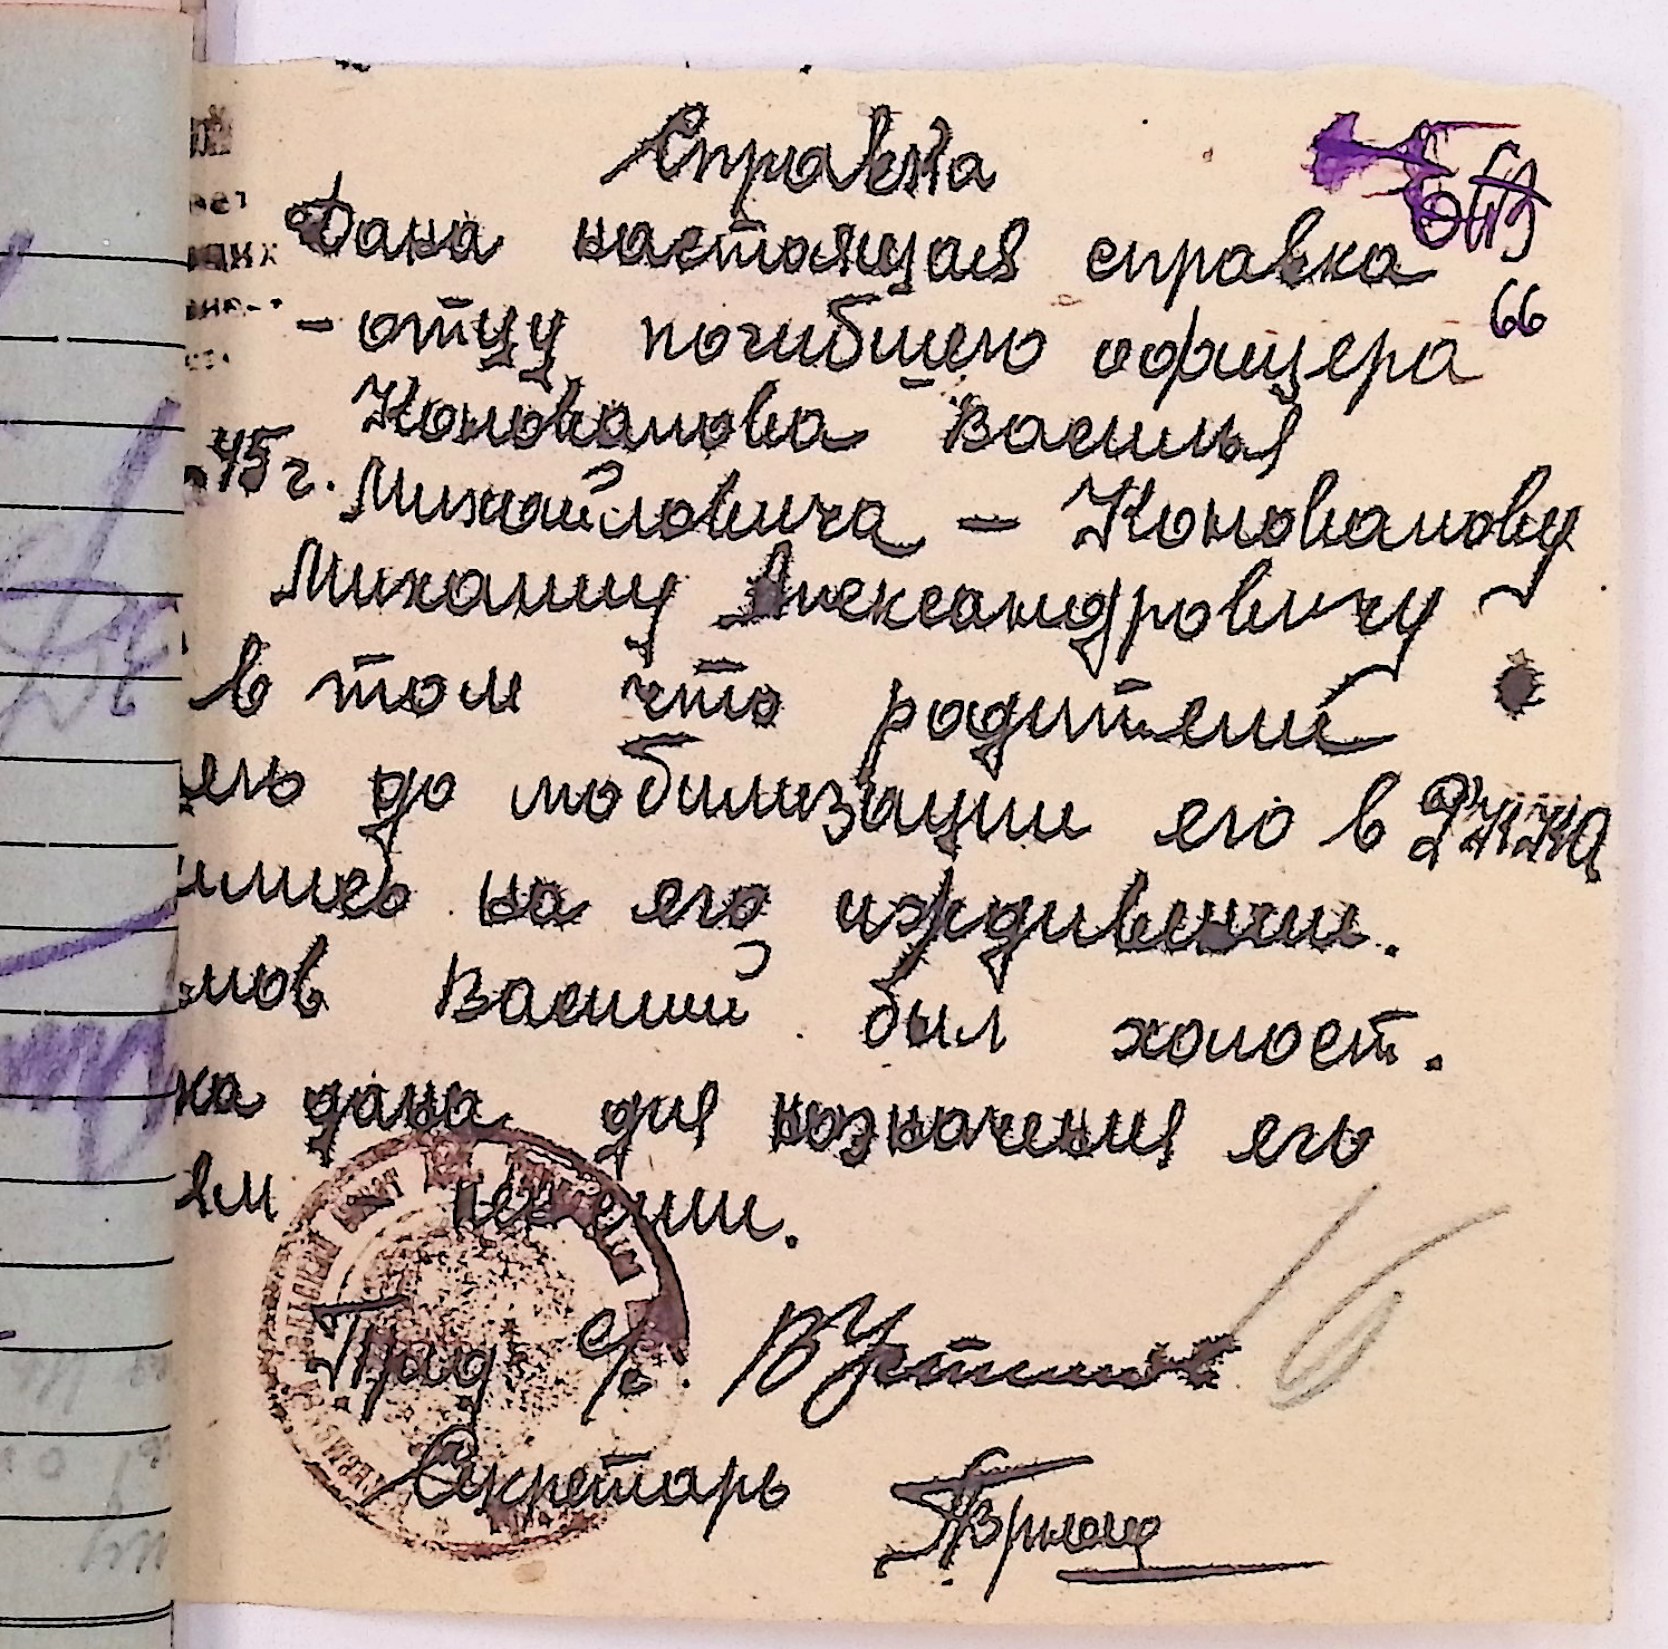 Справка
Дана настоящая справка
- отцу погибшего офицера
66
Коновалова Василья
45 г.
Михайловича - Коновалову
Михаилу Александровичу
в том что родители
его до мобилизации его в РККА
лись на его иждивении.
лов Василий был холост.
ка дана для назначения его
ям - пенсии.
Пред. с/с. ВУстинов
Секретарь